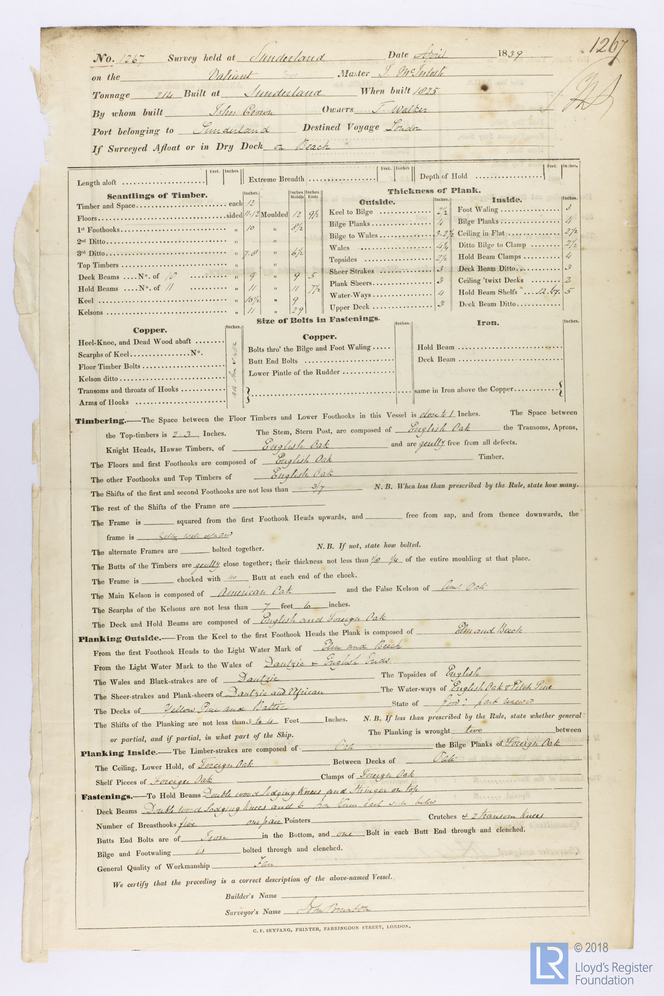 1267
No. 1267 Survey held at Sunderland Date April 1839
on the Valiant Master J McIntosh
Tonnage 214 Built at Sunderland When built 1825
By whom built John Crown Owners T Walker
Port belonging to Sunderland Destined Voyage London
If Surveyed Afloat or in Dry Dock on Beach
Length aloft Feet. Inches. Extreme Breadth Feet. Inches. Depth of Hold Feet. Inches.
Scantlings of Timber.
Timber and Space each 12
Floors sided 11-12 Moulded 12 9½
1st Foothooks " 10 " 8½
2nd Ditto " "
3rd Ditto " 7.8 " 6½
Top Timbers " "
Deck Beams No. of 10 " 9 " 9 5
Hold Beams No. of 11 " 11 " 11 7½
Keel " 10½ " 9
Kelsons " 11 " 29
Thickness of Plank.
Outside.
Keel to Bilge 2½
Bilge Planks 4
Bilge to Wales 3-2½
Wales 4¼
Topsides 2½
Sheer Strakes 3
Plank Sheers 3
Water-Ways 4
Upper Deck 3
Inside.
Foot Waling 3
Bilge Planks 4
Ceiling in Flat 2½
Ditto Bilge to Clamp 2½
Hold Beam Clamps 4
Deck Beam Ditto 3
Ceiling 'twixt Decks 2
Hold Beam Shelfs 5
Deck Beam Ditto
Size of Bolts in Fastenings.
Copper.
Heel-Knee, and Dead Wood abaft
Scarphs of Keel No.
Floor Timber Bolts
Kelson ditto
Transoms and throats of Hooks
Arms of Hooks
Copper.
Bolts thro' the Bilge and Foot Waling
Butt End Bolts
Lower Pintle of the Rudder
Iron.
Hold Beam
Deck Beam
same in Iron above the Copper
Timbering.—The Space between the Floor Timbers and Lower Foothooks in this Vessel is close to 1 Inches. The Space between
the Top-timbers is 2 3 Inches. The Stem, Stern Post, are composed of English Oak the Transoms, Aprons,
Knight Heads, Hawse Timbers, of English Oak and are genlly free from all defects.
The Floors and first Foothooks are composed of English Oak Timber.
The other Foothooks and Top Timbers of English Oak
The Shifts of the first and second Foothooks are not less than 3/7 N.B. When less than prescribed by the Rule, state how many.
The rest of the Shifts of the Frame are
The Frame is squared from the first Foothook Heads upwards, and free from sap, and from thence downwards, the
frame is
The alternate Frames are bolted together. N.B. If not, state how bolted.
The Butts of the Timbers are genlly close together; their thickness not less than of the entire moulding at that place.
The Frame is chocked with no Butt at each end of the chock.
The Main Kelson is composed of American Oak and the False Kelson of Oak
The Scarphs of the Kelsons are not less than 7 feet 6 inches.
The Deck and Hold Beams are composed of English and Foreign Oak
Planking Outside.—From the Keel to the first Foothook Heads the Plank is composed of Elm and Beech
From the first Foothook Heads to the Light Water Mark of Elm and Beech
From the Light Water Mark to the Wales of Dantzic & English Ends
The Wales and Black-strakes are of Dantzic The Topsides of English
The Sheer-strakes and Plank-sheers of Dantzic and African The Water-ways of English Oak & Pitch Pine
The Decks of Yellow Pine and Baltic State of good part worn
The Shifts of the Planking are not less than 5 to 6 Feet Inches. N.B. If less than prescribed by the Rule, state whether general
or partial, and if partial, in what part of the Ship. The Planking is wrought two between
Planking Inside.—The Limber-strakes are composed of Oak the Bilge Planks of Foreign Oak
The Ceiling, Lower Hold, of Foreign Oak Between Decks of Oak
Shelf Pieces of Foreign Oak Clamps of Foreign Oak
Fastenings.—To Hold Beams Double wood lodging knees and Stringer on top
Deck Beams Double wood lodging knees and 6 side bolts
Number of Breasthooks five one pair Pointers Crutches & 2 transom knees
Butts End Bolts are of Iron in the Bottom, and one Bolt in each Butt End through and clenched.
Bilge and Footwaling is bolted through and clenched.
General Quality of Workmanship Fair
We certify that the preceding is a correct description of the above-named Vessel.
Builder's Name
Surveyor's Name John Brunton
C. F. SEYFANG, PRINTER, FARRINGDON STREET, LONDON.
LR
© 2018
Lloyd's Register
Foundation